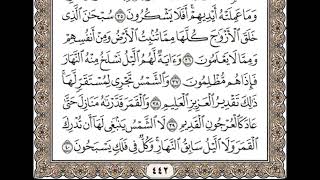 وَمَا عَمِلَتْهُ أَيْدِيهِمْ أَفَلَا يَشْكُرُونَ ٣٥ سُبْحَٰنَ ٱلَّذِى
خَلَقَ ٱلْأَزْوَٰجَ كُلَّهَا مِمَّا تُنۢبِتُ ٱلْأَرْضُ وَمِنْ أَنفُسِهِمْ
وَمِمَّا لَا يَعْلَمُونَ ٣٦ وَءَايَةٌ لَّهُمُ ٱلَّيْلُ نَسْلَخُ مِنْهُ ٱلنَّهَارَ
فَإِذَا هُم مُّظْلِمُونَ ٣٧ وَٱلشَّمْسُ تَجْرِى لِمُسْتَقَرٍّ لَّهَا
ذَٰلِكَ تَقْدِيرُ ٱلْعَزِيزِ ٱلْعَلِيمِ ٣٨ وَٱلْقَمَرَ قَدَّرْنَٰهُ مَنَازِلَ حَتَّىٰ
عَادَ كَٱلْعُرْجُونِ ٱلْقَدِيمِ ٣٩ لَا ٱلشَّمْسُ يَنۢبَغِى لَهَآ أَن تُدْرِكَ
ٱلْقَمَرَ وَلَا ٱلَّيْلُ سَابِقُ ٱلنَّهَارِ وَكُلٌّ فِى فَلَكٍ يَسْبَحُونَ ٤٠
٤٤٢